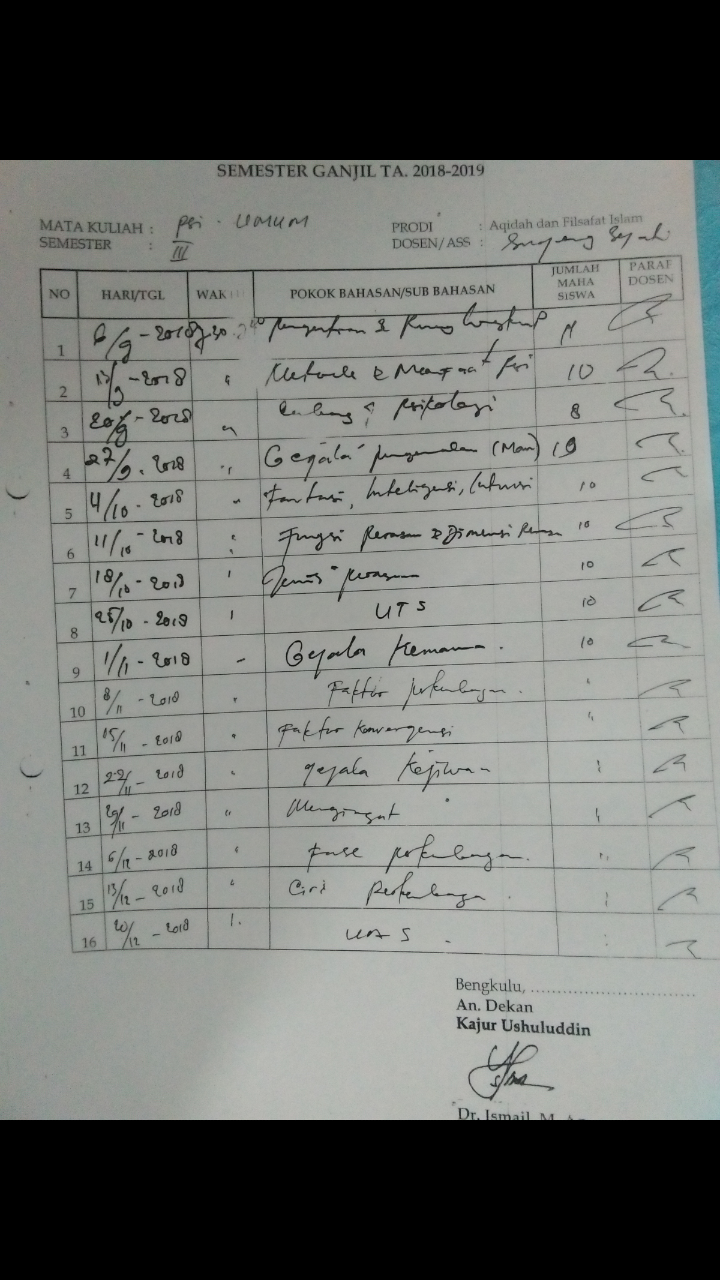 SEMESTER GANJIL TA. 2018-2019
MATA KULIAH : Psi - Umum
PRODI : Aqidah dan Filsafat Islam
SEMESTER : III
DOSEN/ASS :
NO HARI/TGL WAK POKOK BAHASAN/SUB BAHASAN JUMLAH MAHA SISWA PARAF DOSEN
1 6/9 - 2018 pengertian & Ruang lingkup
2 13/9 - 2018 " Metode & Manfaat Psi 10
3 20/9 - 2018 " psikologi 8
4 27/9 - 2018 " Gejala pengenalan 10
5 4/10 - 2018 " Fantasi, Inteligensi, Intuisi 10
6 11/10 - 2018 " Fungsi Perasaan & Dimensi 10
7 18/10 - 2018 " Jenis perasaan 10
8 25/10 - 2018 " UTS 10
9 1/11 - 2018 " Gejala Kemauan. 10
10 8/11 - 2018 " Faktor perkembangan. "
11 15/11 - 2018 " Faktor Konvergensi "
12 22/11 - 2018 " gejala Kejiwaan "
13 29/11 - 2018 " Mengingat "
14 6/12 - 2018 " Fase perkembangan. "
15 13/12 - 2018 " Ciri perkembangan "
16 20/12 - 2018 " UAS "
Bengkulu, ................................
An. Dekan
Kajur Ushuluddin
Dr. Ismail, M.